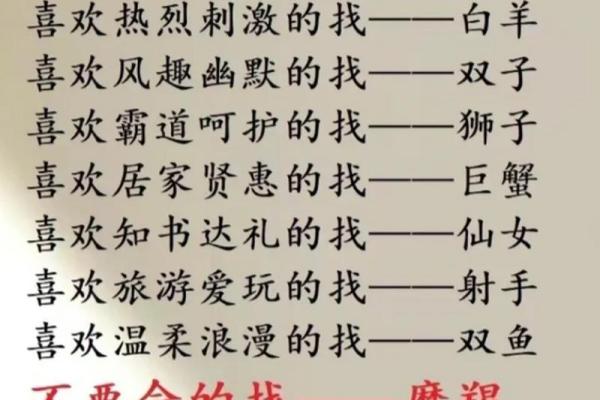 喜欢热烈刺激的找——白羊
喜欢风趣幽默的找——双子
喜欢霸道呵护的找——狮子
喜欢居家贤惠的找——巨蟹
喜欢知书达礼的找——仙女
喜欢旅游爱玩的找——射手
喜欢温柔浪漫的找——双鱼
不要命的找——摩羯